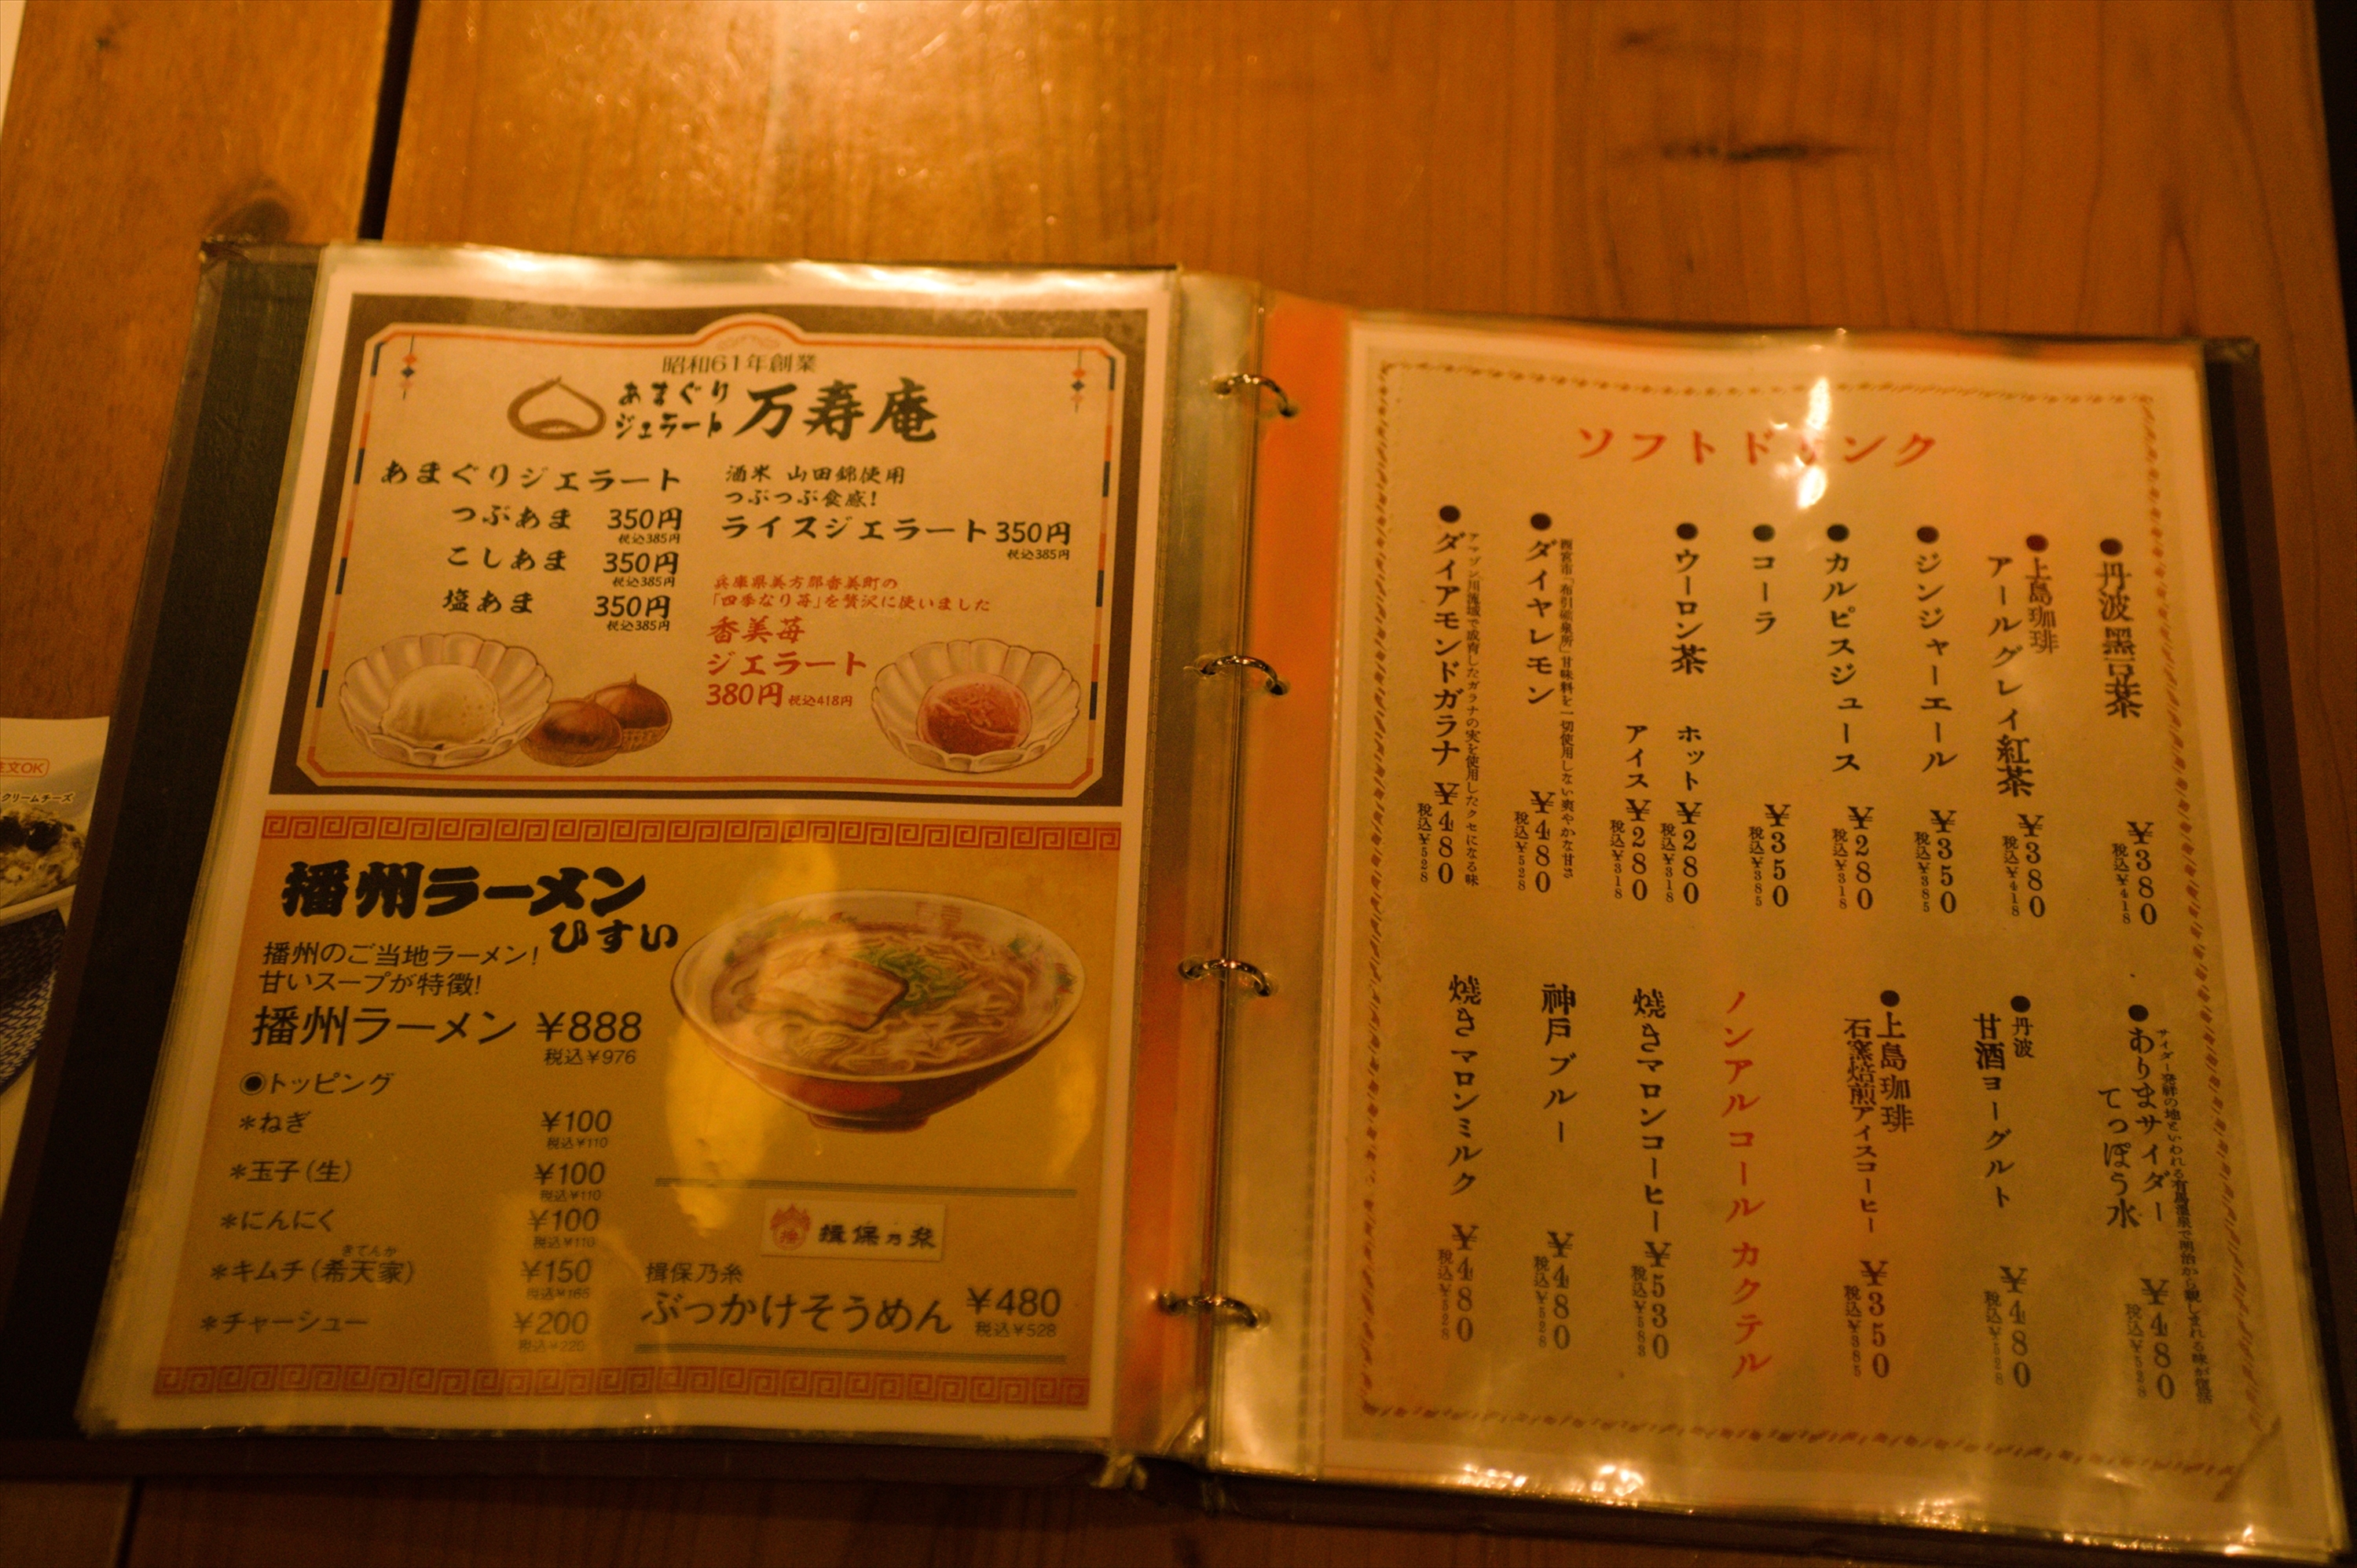 注文OK
クリームチーズ
昭和61年創業
あまぐり
ジェラート
万寿庵
あまぐりジェラート
つぶあま 350円
税込385円
こしあま 350円
税込385円
塩あま 350円
税込385円
酒米 山田錦使用
つぶつぶ食感!
ライスジェラート 350円
税込385円
兵庫県美方郡香美町の
「四季なり苺」を贅沢に使いました
香美苺
ジェラート
380円 税込418円
播州ラーメン
ひすい
播州のご当地ラーメン!
甘いスープが特徴!
播州ラーメン ¥888
税込¥976
◉トッピング
*ねぎ ¥100
税込¥110
*玉子(生) ¥100
税込¥110
*にんにく ¥100
税込¥110
きてんか
*キムチ(希天家) ¥150
税込¥165
*チャーシュー ¥200
税込¥220
揖保乃糸
揖保乃糸
ぶっかけそうめん ¥480
税込¥528
ソフトドリンク
●丹波黒豆茶 ¥380
税込¥418
●上島珈琲
アールグレイ紅茶 ¥380
税込¥418
●ジンジャーエール ¥350
税込¥385
●カルピスジュース ¥280
税込¥318
●コーラ ¥350
税込¥385
●ウーロン茶 ホット ¥280
税込¥318
アイス ¥280
税込¥318
西宮市「布引礦泉所」甘味料を一切使用しない爽やかな甘さ
●ダイヤレモン ¥480
税込¥528
アマゾン川流域で成育したガラナの実を使用したクセになる味
●ダイアモンドガラナ ¥480
税込¥528
サイダー発祥の地といわれる有馬温泉で明治から親しまれる味が復活
●ありまサイダー
てっぽう水 ¥480
税込¥528
●丹波
甘酒ヨーグルト ¥480
税込¥528
●上島珈琲
石窯焙煎アイスコーヒー ¥350
税込¥385
ノンアルコールカクテル
焼きマロンコーヒー ¥530
税込¥583
神戸ブルー ¥480
税込¥528
焼きマロンミルク ¥480
税込¥528